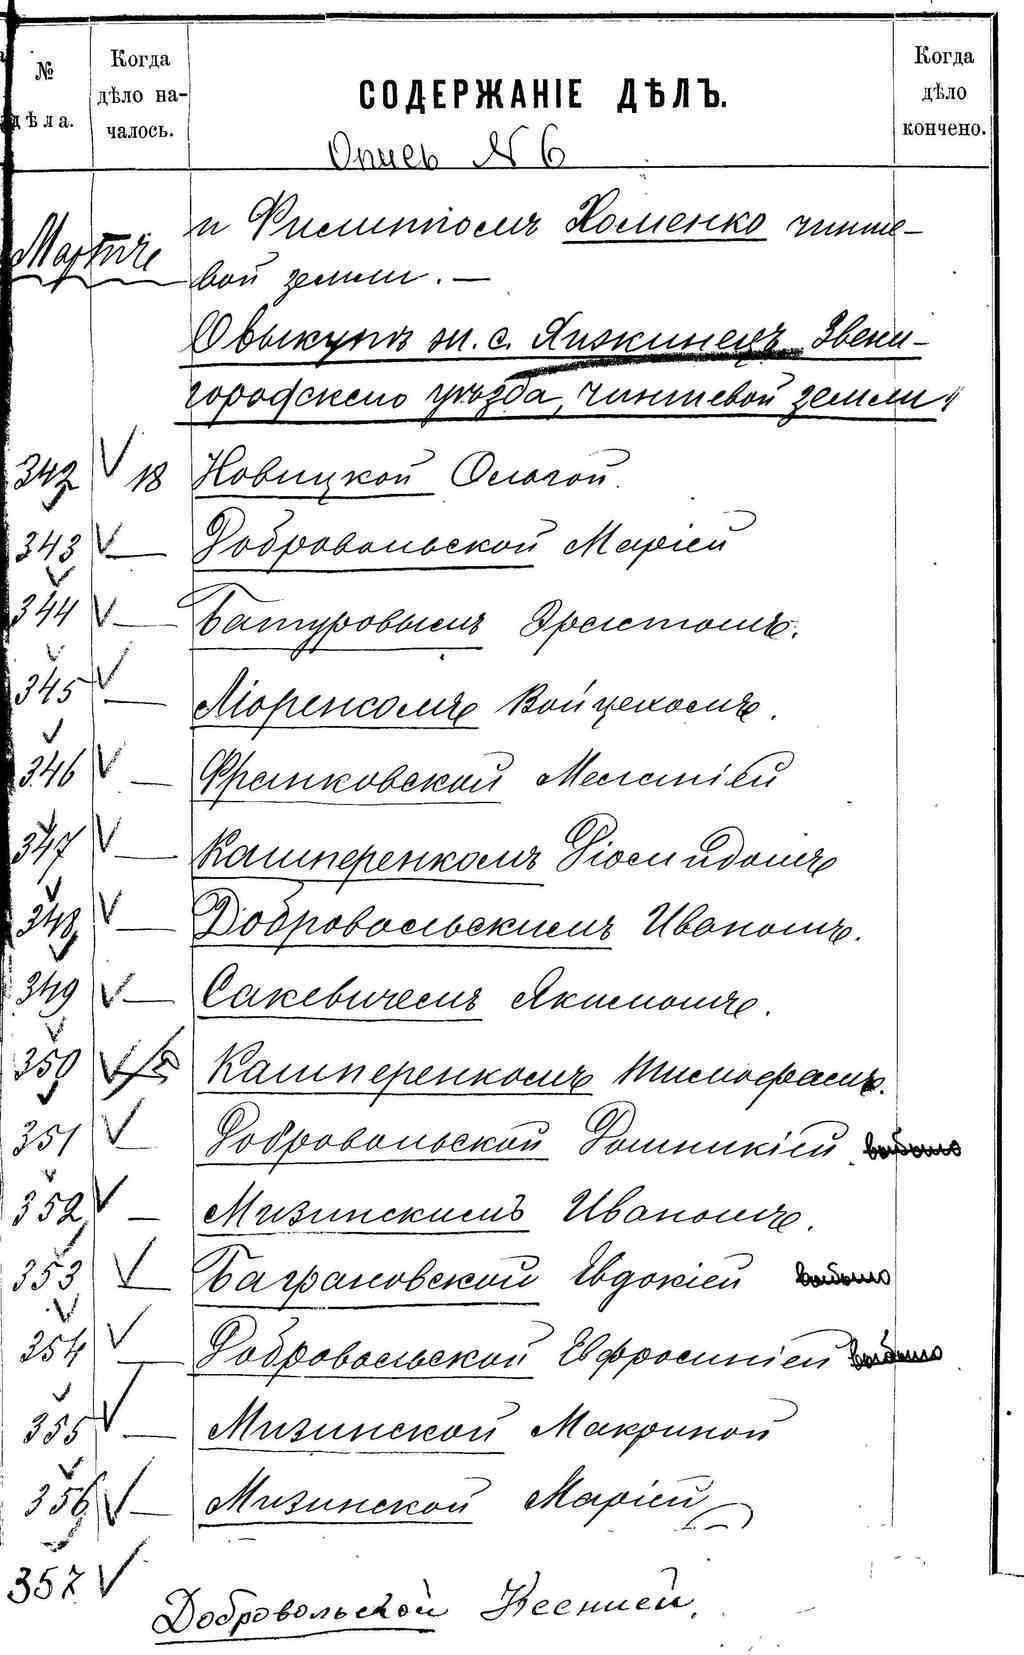 № дѣла.
Когда дѣло на-
чалось.
СОДЕРЖАНІЕ ДѢЛЪ.
Когда дѣло кончено.
Опись N 6
и Филипомъ Хоменко чинше-
вой земли. —
О выкупѣ ж. с. Звени-
городскаго уѣзда, чиншевой земли:
342 18 Новицкой Ольгой.
343 — Добровольской Маріей
344 — Батуровымъ
345 — Войцехомъ.
346 — Франковской Меланіей
347 — Кашперенкомъ
348 — Добровольскимъ Иваномъ.
349 — Сакевичемъ Якимомъ.
350 Кашперенкомъ Тимофеемъ.
351 — Добровольской Домникіей
352 — Мизинскимъ Иваномъ.
353 — Баграновской Евдокіей
354 — Добровольской Евфросиніей
355 — Мизинской Макриной
356 — Мизинской Маріей
357 Добровольской Ксенией.